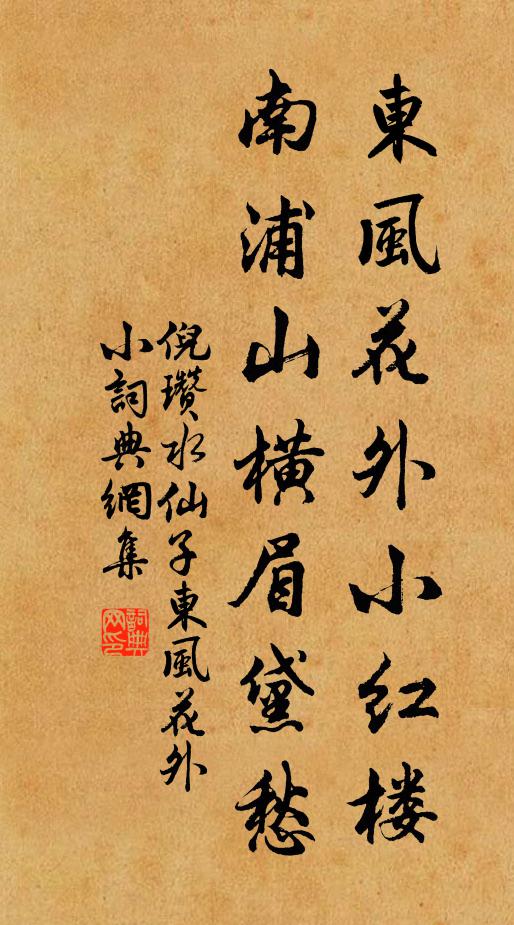 東風花外小红楼
南浦山横眉黛愁
倪瓚水仙子東風花外
小詞典網集
詞典
网印